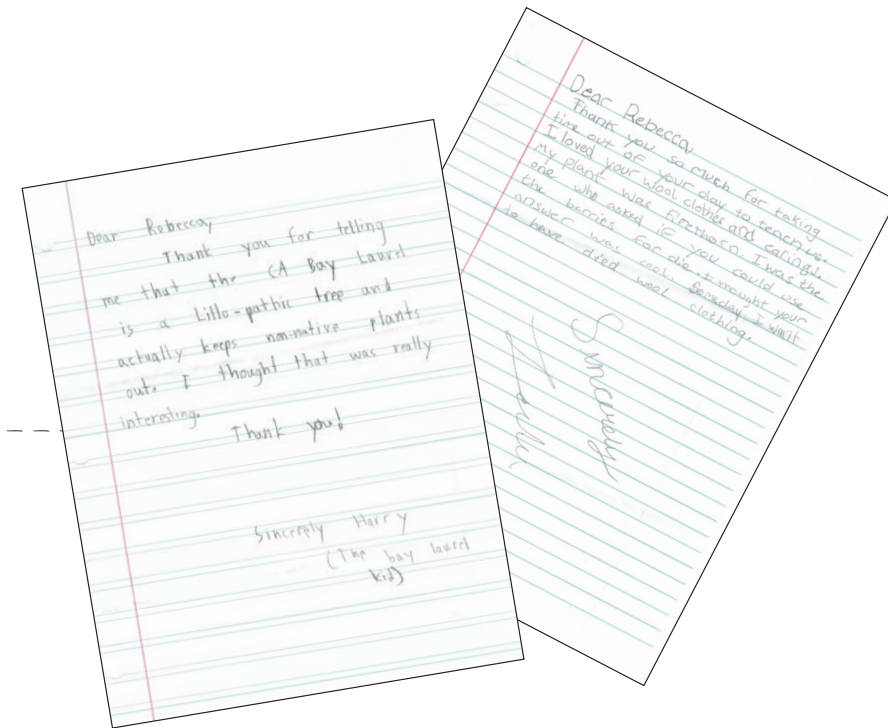 Dear Rebecca,
Thank you for telling
me that the CA Bay Laurel
is a Lillo-pathic tree and
actually keeps non-native plants
out. I thought that was really
interesting.
Thank you!
Sincerely Harry
(The bay laurel
kid)
Dear Rebecca
Thank you so much for taking
time out of your day to teach us.
I loved your wool clothes and earings.
My plant was Firethorn. I was the
one who asked if you could use
the berries for die. I thought your
answer was cool. Someday I want
to have died wool clothing.
Sincerely